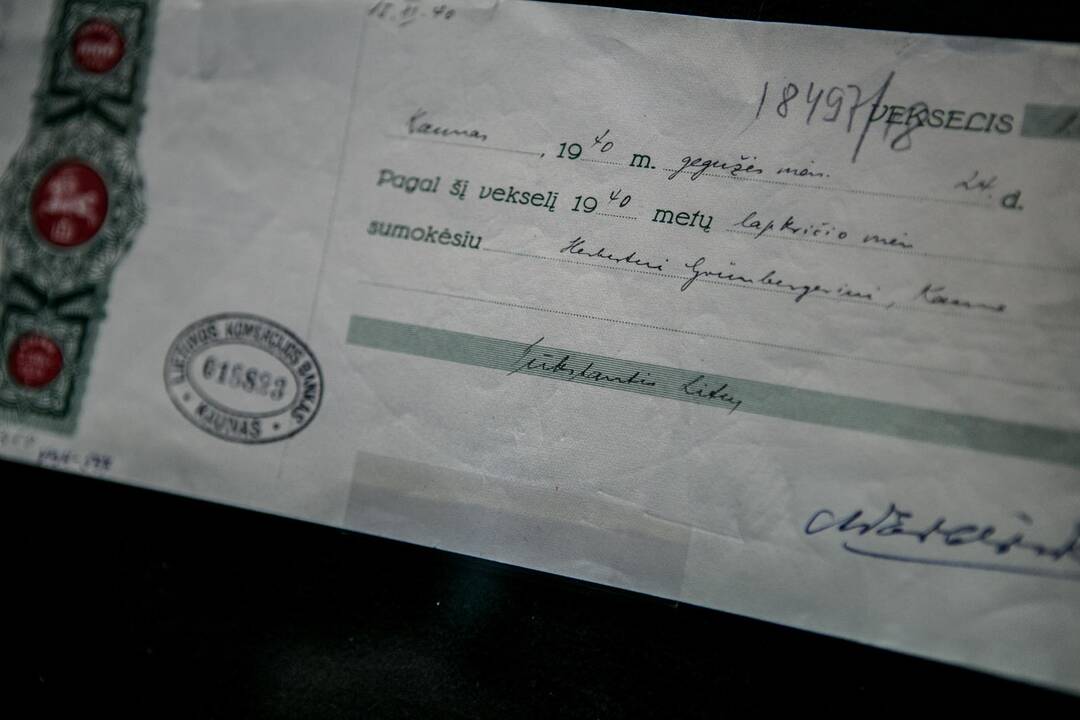 18497/18
VEKSELIS
Kaunas, 1940 m. gegužės mėn. 24 d.
Pagal šį vekselį 1940 metų lapkričio mėn
sumokėsiu Herbertui Grünbergerini, Kaune
Tūkstantis Litų
LIETUVOS KOMERCIJOS BANKAS
015893
KAUNAS